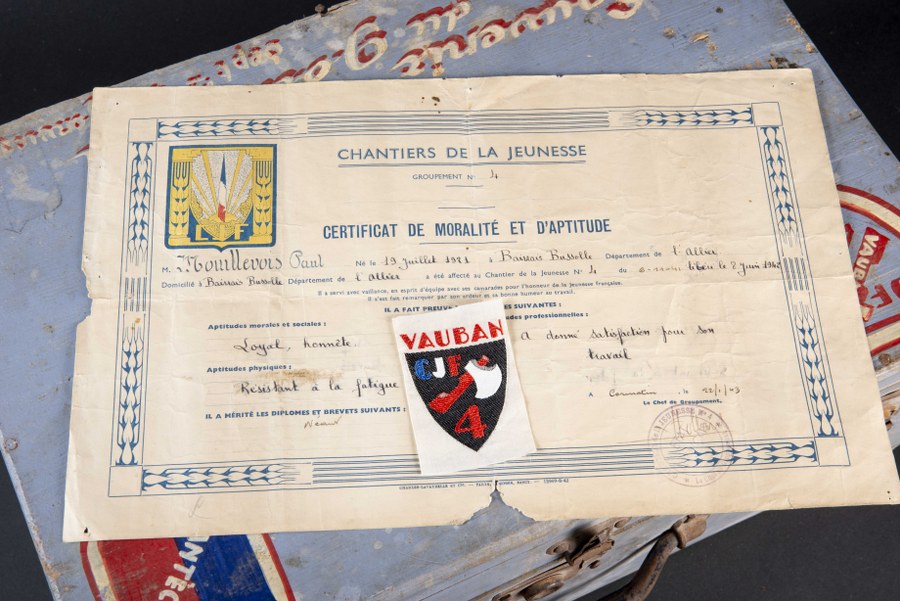 Souvenir
du
CHANTIERS DE LA JEUNESSE
GROUPEMENT N° 4
CERTIFICAT DE MORALITÉ ET D'APTITUDE
M. Mouillevois Paul Né le 19 Juillet 1921 à Barrais Bussolle Département de l'Allier
Domicilié à Barrais Bussolle Département de l'Allier a été affecté au Chantier de la Jeunesse N° 4 du libéré le 8 Juin 1942
Il a servi avec vaillance, en esprit d'équipe avec ses camarades pour l'honneur de la jeunesse française.
Il s'est fait remarquer par son ardeur et sa bonne humeur au travail.
IL A FAIT PREUVE ES SUIVANTES :
Aptitudes morales et sociales :
udes professionnelles :
Loyal, honnête.
A donné satisfaction pour son
travail
Aptitudes physiques :
Résistant à la fatigue
IL A MÉRITÉ LES DIPLOMES ET BREVETS SUIVANTS :
Néant
A Cormatin, le
Le Chef de Groupement,
VAUBAN
CJF
4
VAUBA